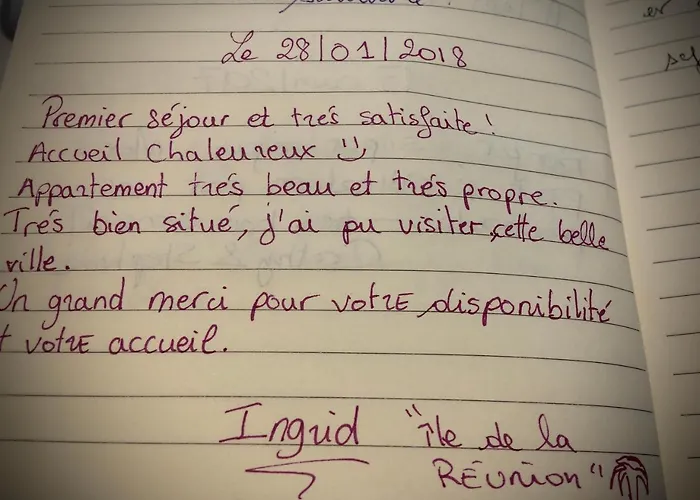 Le 28/01/2018
Premier séjour et trés satisfaite !
Accueil chaleureux
Appartement trés beau et trés propre.
Trés bien situé, j'ai pu visiter cette belle
ville.
Un grand merci pour votre disponibilité
et votre accueil.
Ingrid "île de la
RÉUNION"